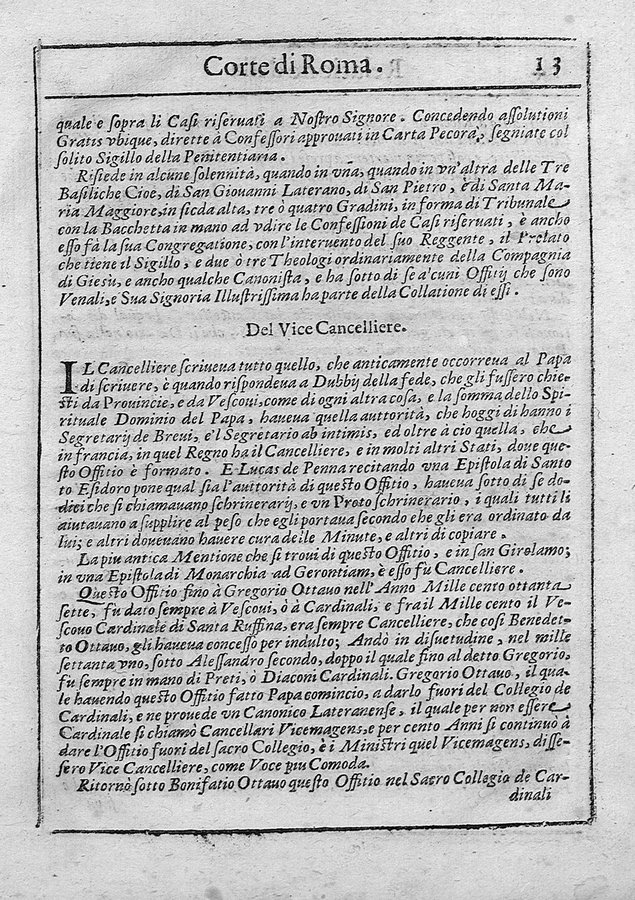 Corte di Roma. 13
quale e sopra li Casi riseruati a Nostro Signore. Concedendo assolutioni
Gratis vbique, dirette à Confessori approuati in Carta Pecora, segniate col
solito Sigillo della Penitentiaria.
Risiede in alcune solennità, quando in vna, quando in vn'altra delle Tre
Basiliche Cioe, di San Giouanni Laterano, di San Pietro, è di Santa Ma-
ria Maggiore, in sieda alta, tre ò quatro Gradini, in forma di Tribunale
con la Bacchetta in mano ad vdire le Confessioni de Casi riseruati, è ancho
esso fà la sua Congregatione, con l'interuento del suo Reggente, il Prelato
che tiene il Sigillo, e due ò tre Theologi ordinariamente della Compagnia
di Giesu, e ancho qualche Canonista, e ha sotto di se alcuni Offitij che sono
Venali, e Sua Signoria Illustrissima ha parte della Collatione di essi.
Del Vice Cancelliere.
IL Cancelliere scriueua tutto quello, che anticamente occorreua al Papa
di scriuere, è quando rispondeua a Dubbij della fede, che gli fussero chie-
sti da Prouincie, e da Vescoui, come di ogni altra cosa, e la somma dello Spi-
rituale Dominio del Papa, haueua quella auttorità, che hoggi di hanno i
Segretarij de Breui, e'l Segretario ab intimis, ed oltre à cio quella, che
in francia, in quel Regno ha il Cancelliere, e in molti altri Stati, doue que-
sto Offitio è formato. E Lucas de Penna recitando vna Epistola di Santo
to Esidoro pone qual sia l'auttorità di questo Offitio, haueua sotto di se do-
dici che si chiamauano schrinerarij, e vn Proto schrinerario, i quali tutti li
aiutauano a supplire al peso che egli portaua secondo ehe gli era ordinato da
lui; e altri doueuano hauere cura delle Minute, e altri di copiare.
La piu antica Mentione che si troui di questo Offitio, e in san Girolamo;
in vna Epistola di Monarchia ad Gerontiam, è esso fù Cancelliere.
Questo Offitio fino à Gregorio Ottauo nell'Anno Mille cento ottanta
sette, fu dato sempre à Vescoui, ò à Cardinali, e fra il Mille cento il Ve-
scouo Cardinale di Santa Ruffina, era sempre Cancelliere, che cosi Benedet-
to Ottauo, gli haueua concesso per indulto; Andò in disuetudine, nel mille
settanta vno, sotto Alessandro secondo, doppo il quale fino al detto Gregorio,
fu sempre in mano di Preti, ò Diaconi Cardinali. Gregorio Ottauo, il qua-
le hauendo questo Offitio fatto Papa comincio, a darlo fuori del Collegio de
Cardinali, e ne prouede vn Canonico Lateranense, il quale per non essere
Cardinale si chiamò Cancellari Vicemagens, e per cento Anni si continuò à
dare l'Offitio fuori del sacro Collegio, è i Ministri quel Vicemagens, disse-
sero Vice Cancelliere, come Voce piu Comoda.
Ritornò sotto Bonifatio Ottauo questo Offitio nel Sacro Collegio de Car-
dinali